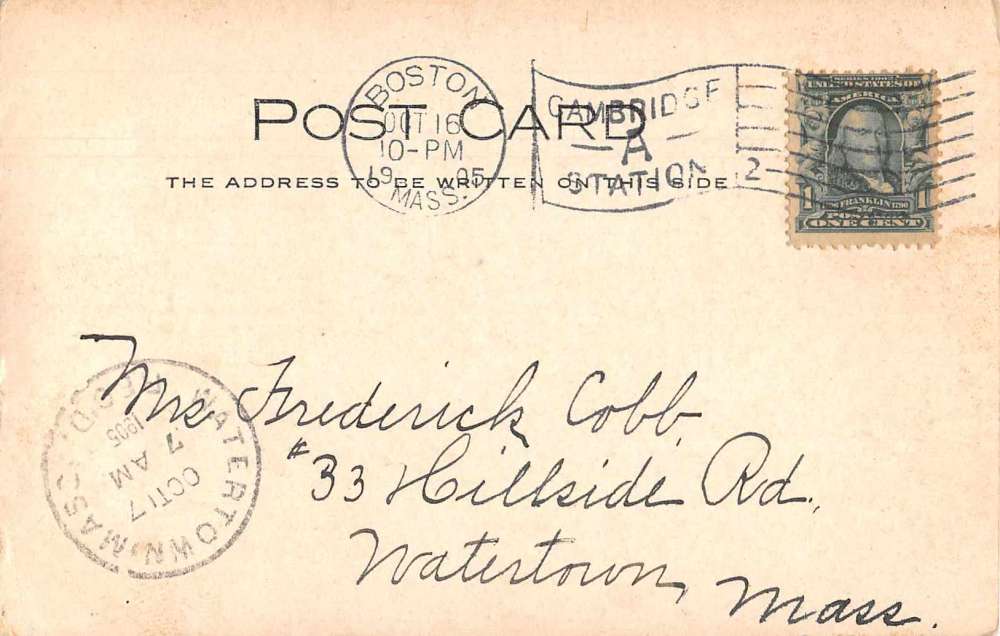 POST CARD
THE ADDRESS TO BE WRITTEN ON THIS SIDE
BOSTON
OCT 16
10-PM
19 05
MASS.
CAMBRIDGE
A
STATION
2
SERIES 1902
UNITED STATES OF
AMERICA
1 FRANKLIN 1
POSTAGE
ONE CENT
Mrs Frederick Cobb
#33 Hillside Rd.
Watertown, Mass.
WATERTOWN, MASS.
OCT 17
7 AM
1905